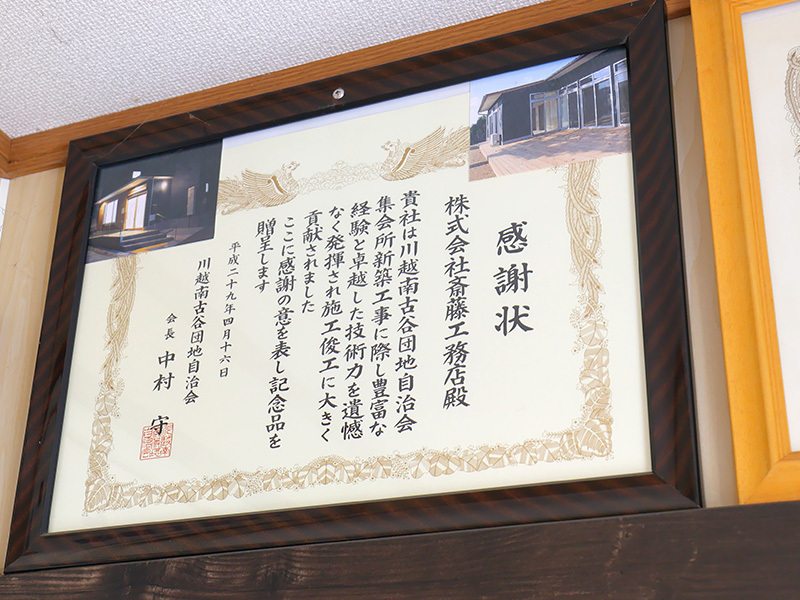 感謝状
株式会社斎藤工務店殿
貴社は川越南古谷団地自治会
集会所新築工事に際し豊富な
経験と卓越した技術力を遺憾
なく発揮され施工俊工に大きく
貢献されました
ここに感謝の意を表し記念品を
贈呈します
平成二十九年四月十六日
川越南古谷団地自治会
会長 中村 守